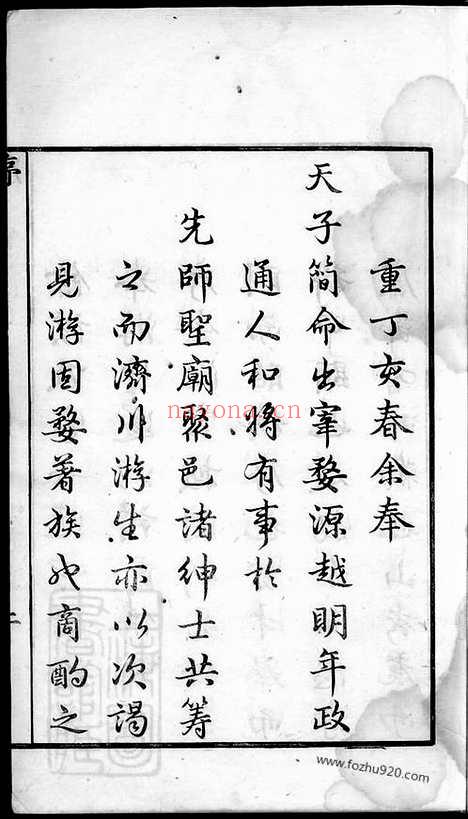 重丁亥春余奉
天子簡命出宰婺源越明年政
通人和將有事於
先師聖廟聚邑諸紳士共籌
之而濟川游生亦以次謁
見游固婺著族也商酌之
序
nayona.cn
www.fozhu920.com